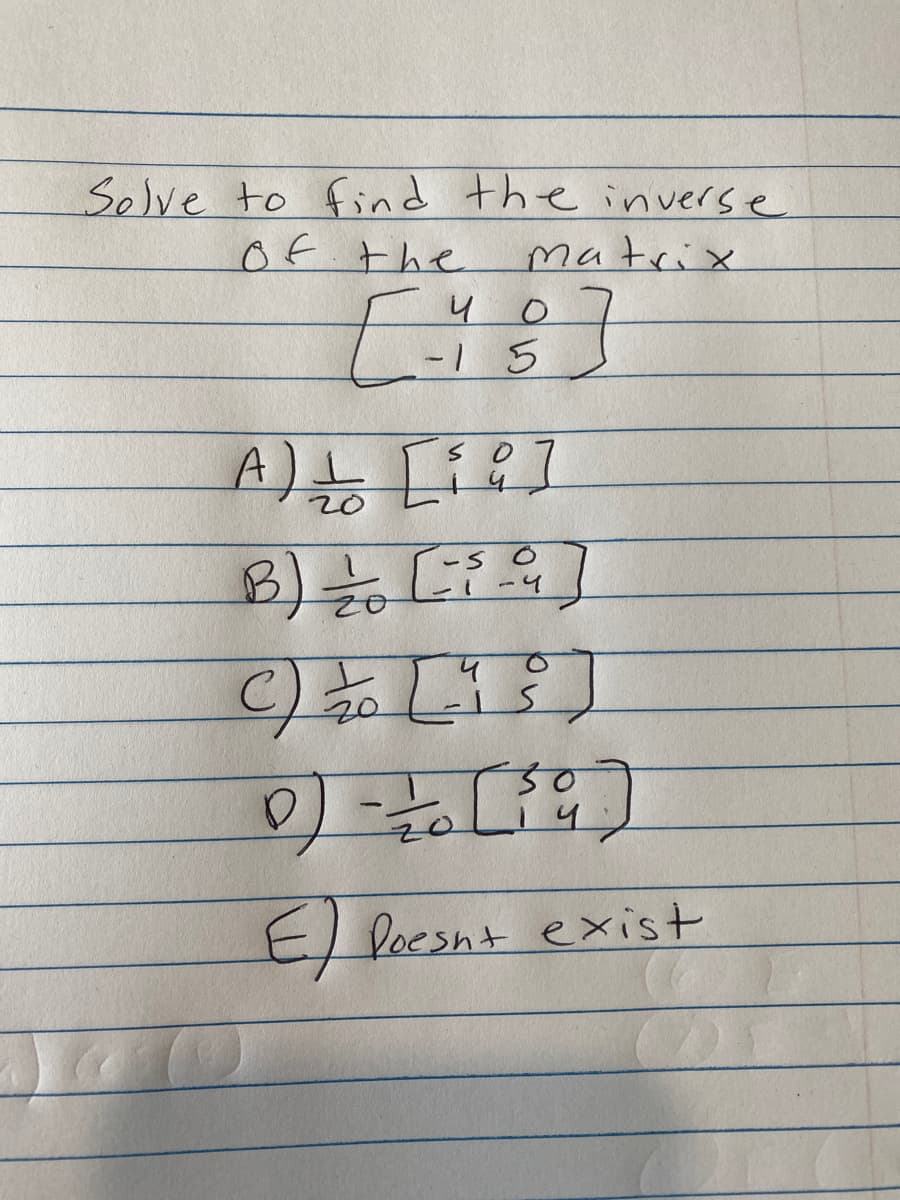 Solve to find the inverse
of the matrix
[ 4 0
-1 5 ]
A) 1/20 [ 5 0
1 4 ]
B) 1/20 [ -5 0
-1 -4 ]
C) 1/20 [ 4 0
-1 5 ]
D) -1/20 [ 5 0
1 4 ]
E) Doesnt exist